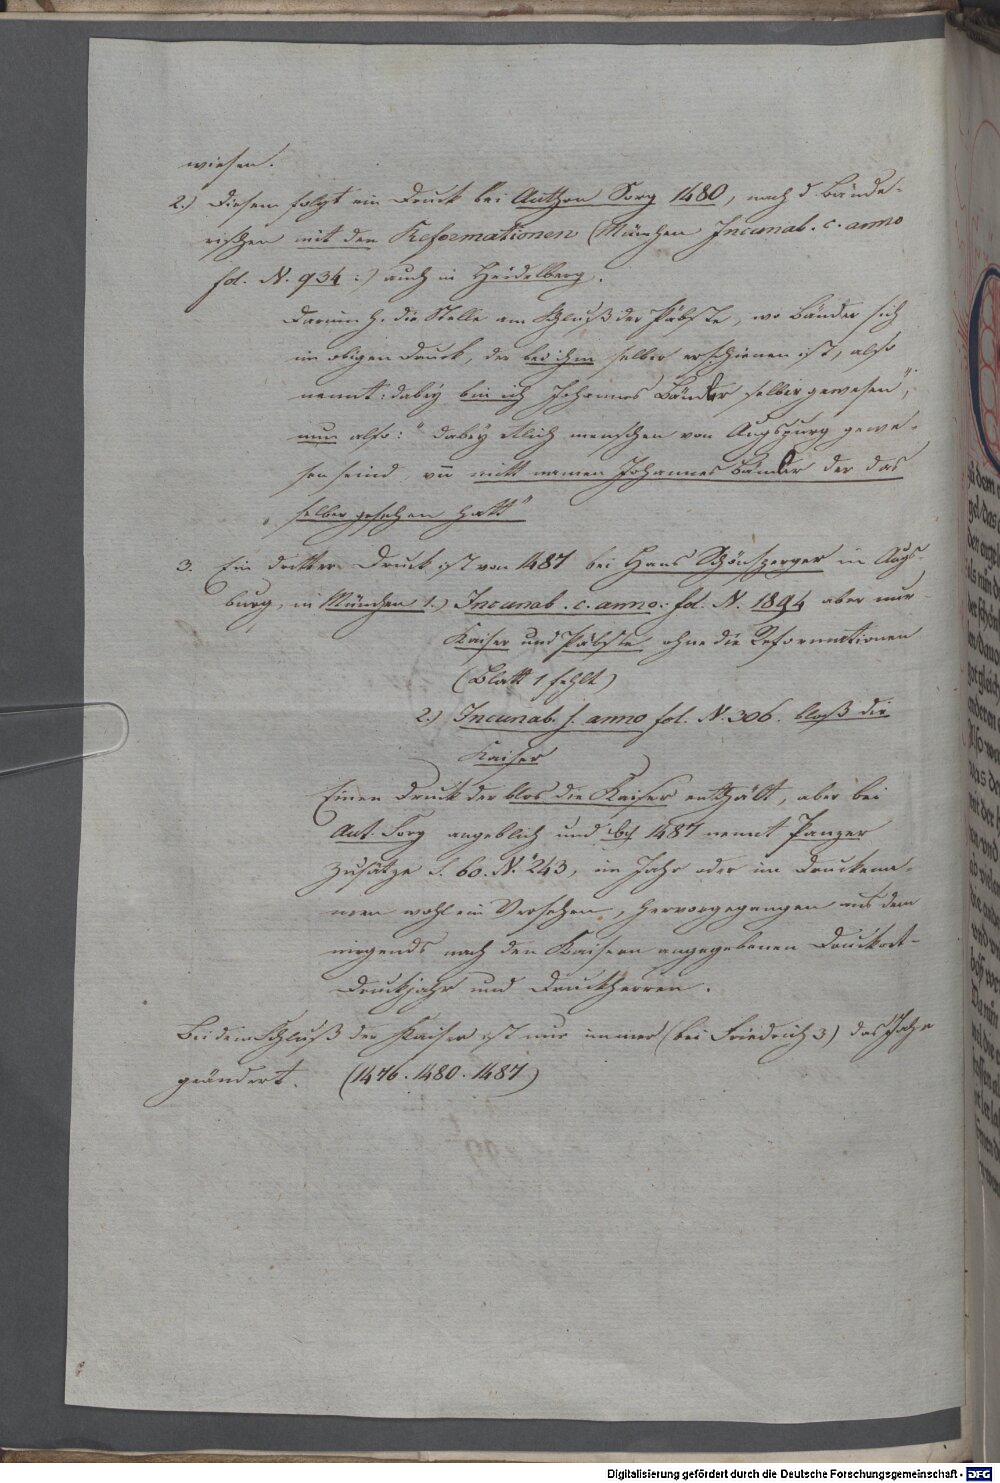 wiesen.
2.) Diesem folgt ein Druck bei Anthon Sorg 1480, nach d. Bände-
rischen mit den Reformationen (München Incunab. c. anno
fol. N. 934:) auch in Heidelberg.
Darum h. die Stelle am Schluß der Päbste, wo Bänder sich
im obigen Druck, der bei ihm selber erschienen ist, also
nennt: dabey bin ich Johannes Bämler selber gewesen",
nun also: "dabey etlich menschen von Augspurg gewe-
sen seind, vn mitt namen Johannes Bämler der das
selber gesehen hatt"
3. Ein dritter Druck ist von 1487 bei Hans Schönsperger in Augs-
burg, in München 1.) Incunab. c. anno. fol. N. 1894 aber nur
Kaiser und Päbste, ohne die Reformationen
(Blatt 1 fehlt)
2.) Incunab. s. anno fol. N. 306. bloß die
Kaiser
Einen Druck der blos die Kaiser enthält, aber bei
Ant. Sorg angeblich und 1487 nennt Panzer
Zusätze S. 60. N. 243, im Jahr oder im Druckerna-
men wohl ein Versehen, hervorgegangen aus dem
nirgends nach den Kaisern angegebenen Druckort-
Druckjahr und Druckherren.
Bei dem Schluß der Kaiser ist nur immer (bei Friedrich 3) das Jahr
geändert. (1476. 1480. 1487)
Digitalisierung gefördert durch die Deutsche Forschungsgemeinschaft - DFG